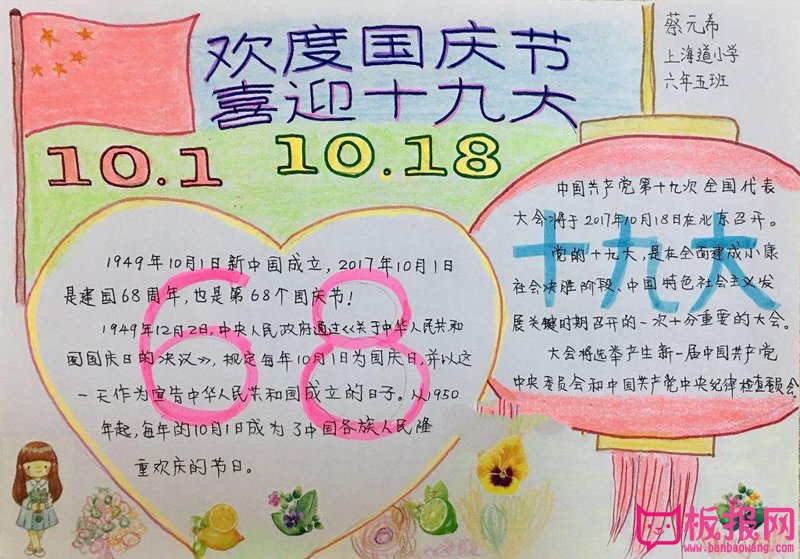 欢度国庆节
喜迎十九大
蔡元希
上海道小学
六年五班
10.1
10.18
1949年10月1日新中国成立,2017年10月1日
是建国68周年,也是第68个国庆节!
1949年12月2日,中央人民政府通过《关于中华人民共和
国国庆日的决议》,规定每年10月1日为国庆日,并以这
一天作为宣告中华人民共和国成立的日子。从1950
年起,每年的10月1日成为了中国各族人民隆
重欢庆的节日。
68
中国共产党第十九次全国代表
大会将于2017年10月18日在北京召开。
党的十九大,是在全面建成小康
社会决胜阶段、中国特色社会主义发
展关键时期召开的一次十分重要的大会。
大会将选举产生新一届中国共产党
中央委员会和中国共产党中央纪律检查委员会。
十九大
板报网
www.banbaowang.com